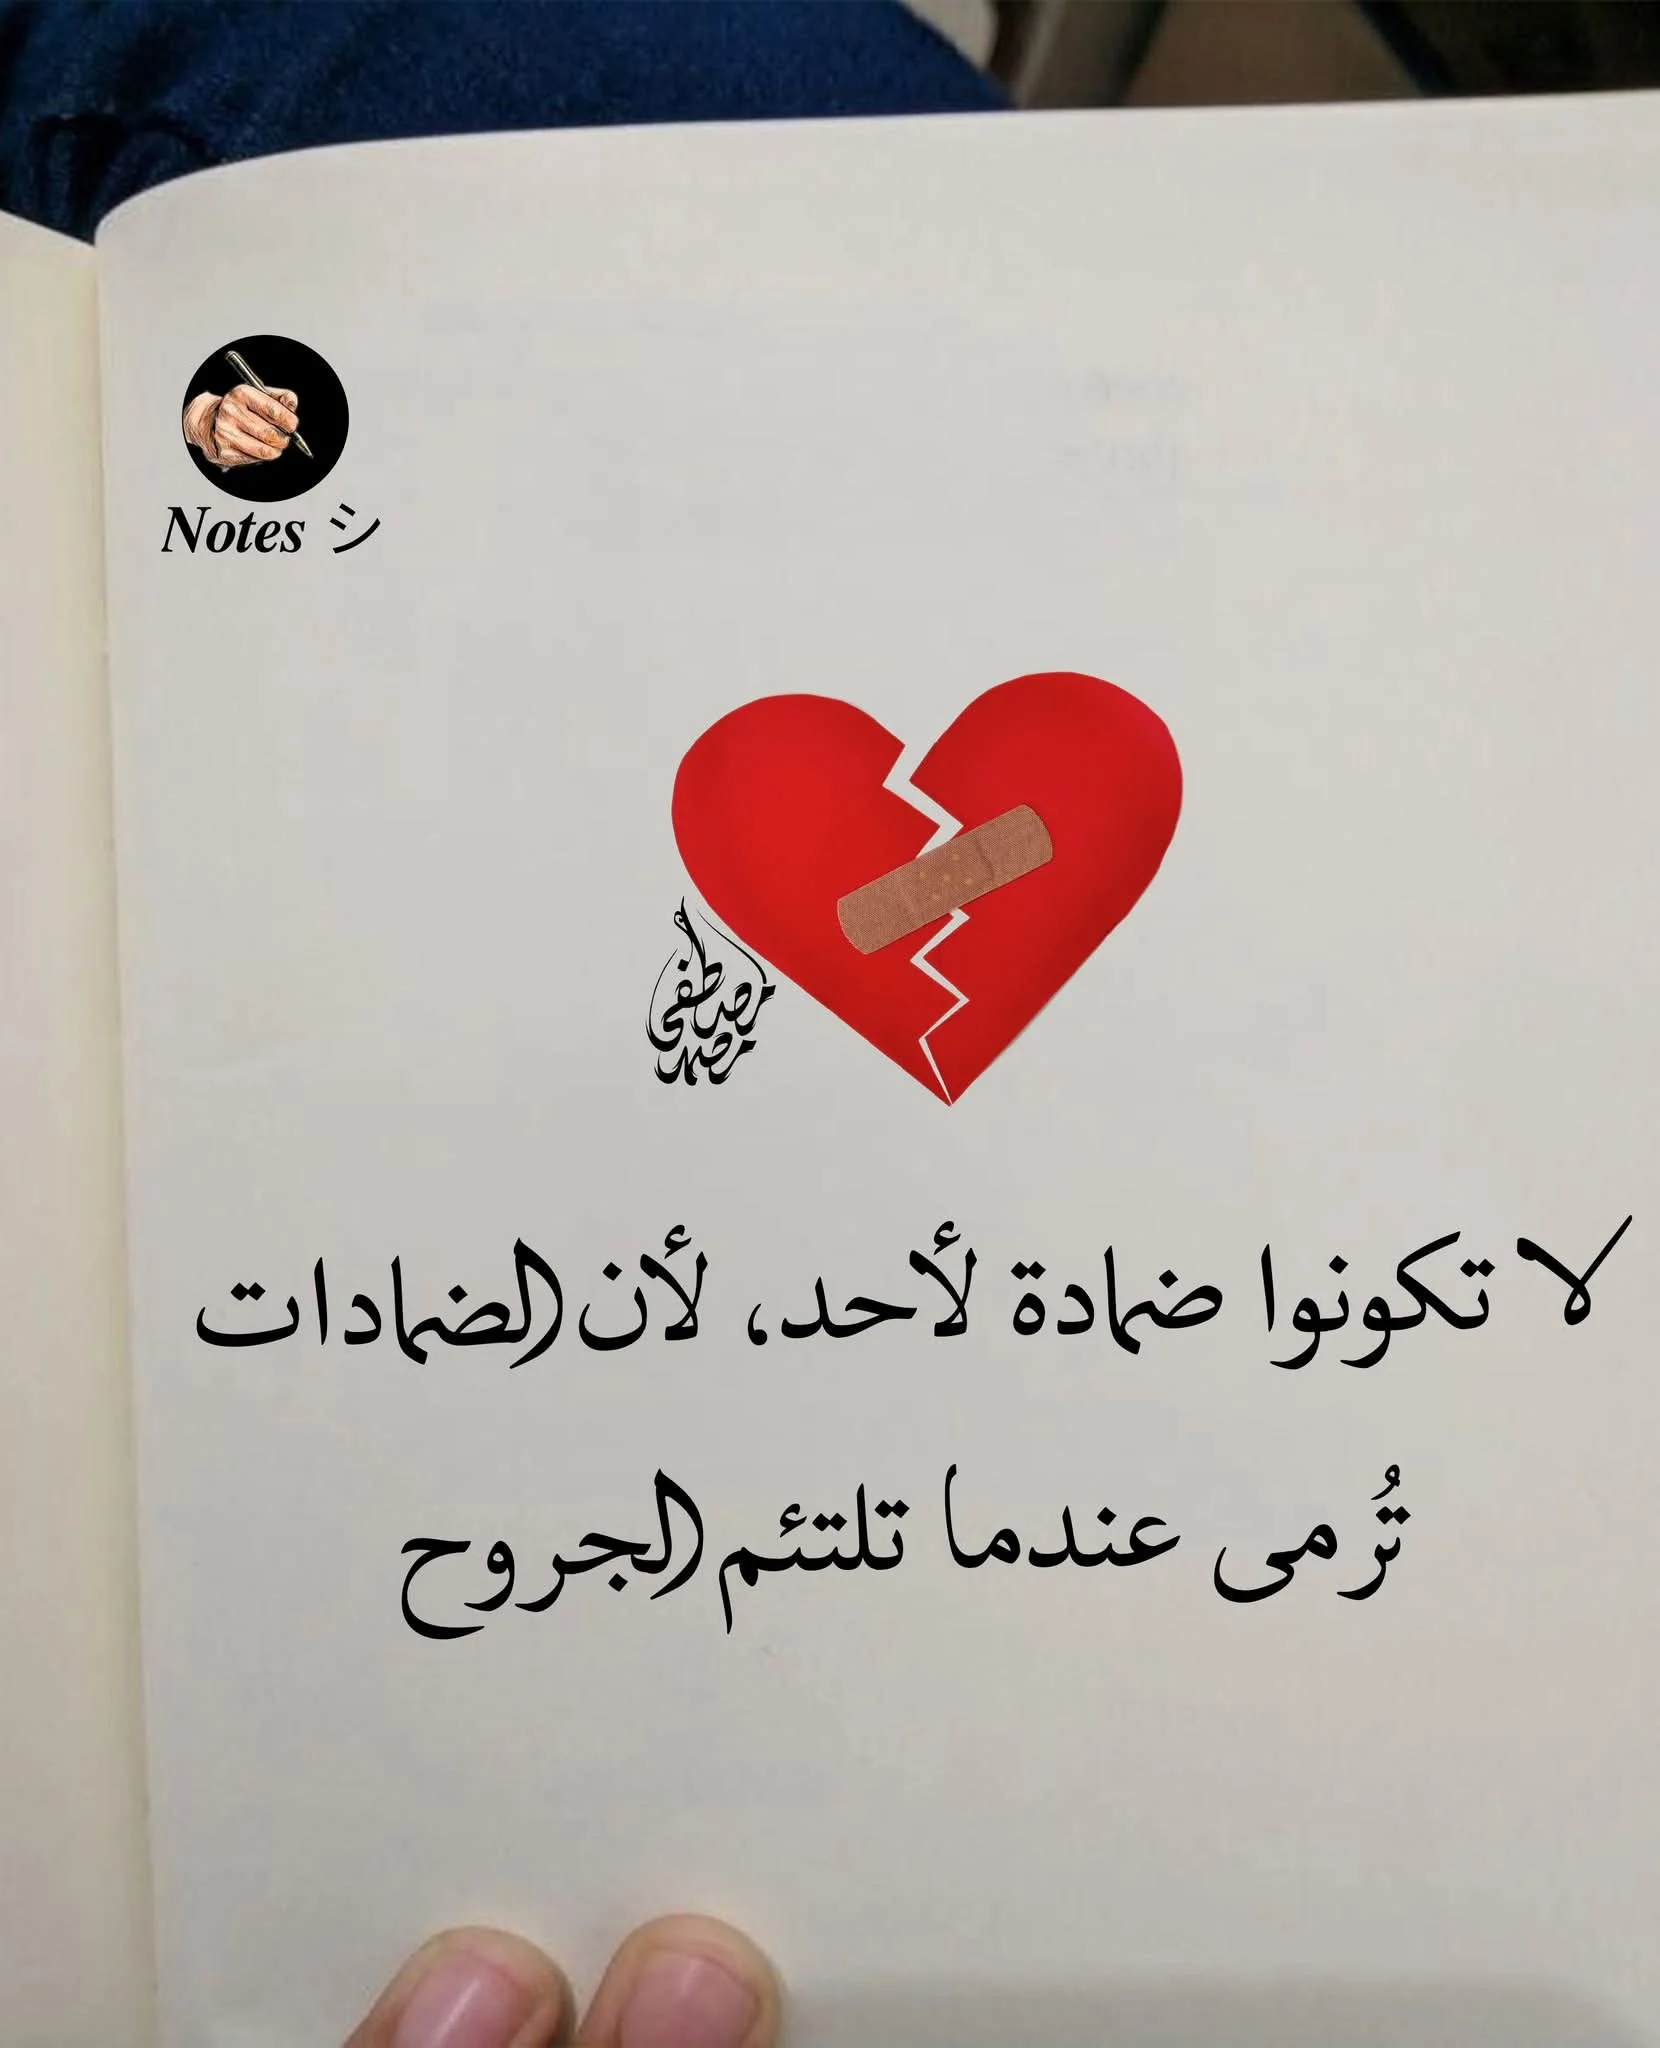 Notes シ
مصطفى
لا تكونوا ضمادة لأحد، لأن الضمادات
تُرمى عندما تلتئم الجروح